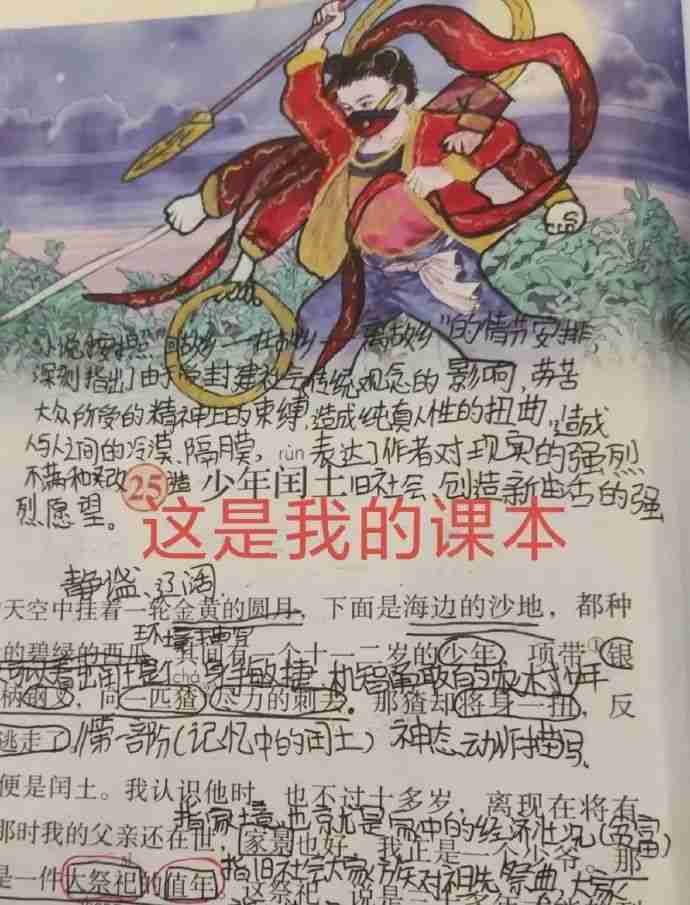 小说按照“回故乡——在故乡——离故乡”的情节安排，
深刻指出了由于受封建社会传统观念的影响，劳苦
大众所受的精神上的束缚，造成纯真人性的扭曲，造成
人与人之间的冷漠、隔膜，表达了作者对现实的强烈
rùn
不满和改造旧社会、创造新生活的强
25 少年闰土
烈愿望。
这是我的课本
静谧、辽阔
天空中挂着一轮金黄的圆月，下面是海边的沙地，都种
环境描写
的碧绿的西瓜，其间有一个十一二岁的少年，项带①银
看出闰土是个身手敏捷、机智勇敢的农村少年
chá
柄钢叉，向一匹猹尽力的刺去。那猹却将身一扭，反
逃走了。
(第一部分（记忆中的闰土）神态、动作描写
便是闰土。我认识他时，也不过十多岁，离现在将有
指家境，也就是家中的经济状况（富）
那时我的父亲还在世，家景也好，我正是一个少爷。那
指旧社会大家族对祖先祭典，大家
是一件大祭祀的值年
这祭祀，说是